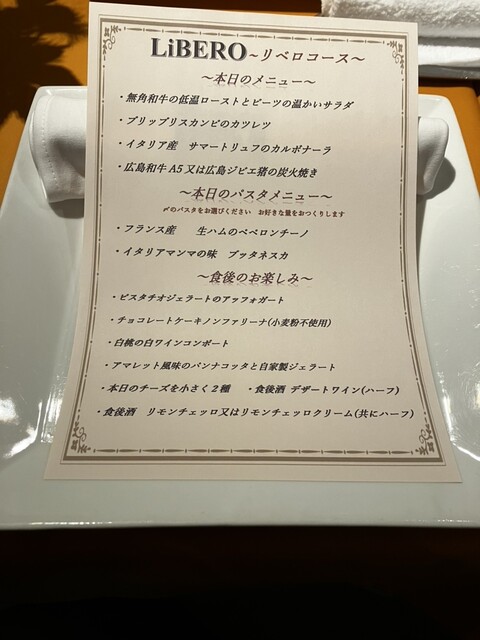 LiBERO～リベロコース～
～本日のメニュー～
・無角和牛の低温ローストとビーツの温かいサラダ
・プリップリスカンピのカツレツ
・イタリア産　サマートリュフのカルボナーラ
・広島和牛A5又は広島ジビエ猪の炭火焼き
～本日のパスタメニュー～
〆のパスタをお選びください　お好きな量をおつくりします
・フランス産　生ハムのペペロンチーノ
・イタリアマンマの味　プッタネスカ
～食後のお楽しみ～
・ピスタチオジェラートのアッフォガート
・チョコレートケーキノンファリーナ(小麦粉不使用)
・白桃の白ワインコンポート
・アマレット風味のパンナコッタと自家製ジェラート
・本日のチーズを小さく２種　・食後酒 デザートワイン(ハーフ)
・食後酒　リモンチェッロ又はリモンチェッロクリーム(共にハーフ)